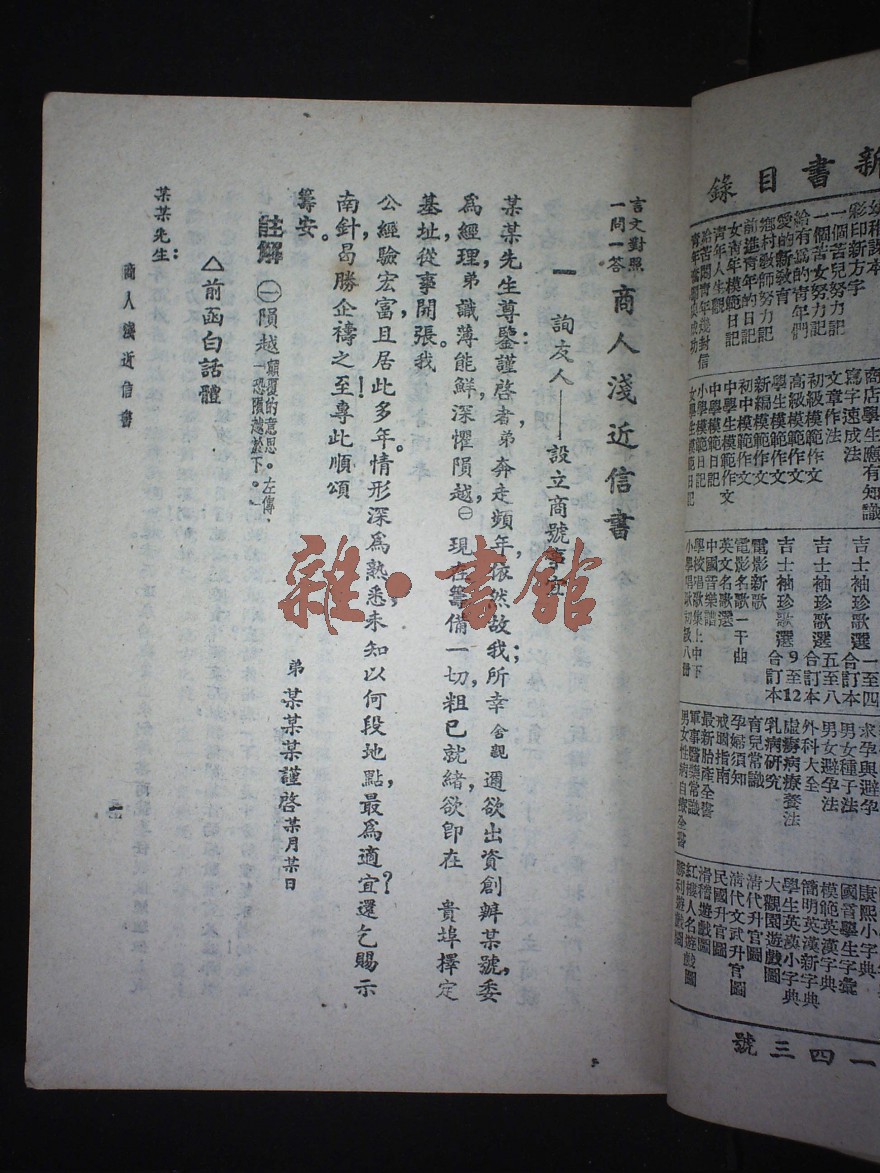 言文對照
一問一答
商人淺近信書
一 詢友人——設立商號事宜
某某先生尊鑒：謹啓者，弟奔走頻年，依然故我；所幸舍親邇欲出資創辦某號，委
爲經理，弟識薄能鮮，深懼隕越㊀，現在籌備一切，粗已就緒，欲卽在　貴埠擇定
基址，從事開張。我
公經驗宏富，且居此多年，情形深爲熟悉，未知以何段地點，最爲適宜？還乞賜示
南針，曷勝企禱之至！專此順頌
籌安。
弟 某某某謹啓 某月某日
註解 ㊀隕越 顚覆的意思。左傳、
「恐隕越於下。」
△前函白話體
某某先生：
商人淺近信書
一
新書目錄
彩印新方字
一個苦兒努力記
一個苦女努力記
給有爲的青年們
愛的新敎育
鄉村敎師努力記
前進青年的日記
女青年模範日記
青年人生觀
給苦悶青年幾封信
商店學生應有知識
寫字速成法
文章作法
初級模範作文
高級模範作文
學生模範作文
新編模範作文
初中模範作文
中學生模範作文
中學模範日記
小學模範日記
女學生模範日記
吉士袖珍歌選 一至四合訂本
吉士袖珍歌選 五至八合訂本
吉士袖珍歌選 9至12合訂本
電影新歌
電影名歌一千曲
英文名歌選
中國音樂譜
學校唱歌集上中下
小學唱歌初級八冊
求孕與避孕
男女種子法
男女避孕法
外科大全
虛癆病療養法
乳病研究
育兒常識
孕婦須知
戒烟指南
最新胎產全書
軍事醫藥常識
男女性病自療全書
康熙小字典
國音學生字彙
模範英漢字典
簡明英漢新字典
學生英漢小字典
大觀園遊戲圖
清代升官圖
清代文武升官圖
民國升官圖
滑稽遊戲圖
紅樓人名遊戲圖
勝利遊戲圖
一四三號
雜·書館